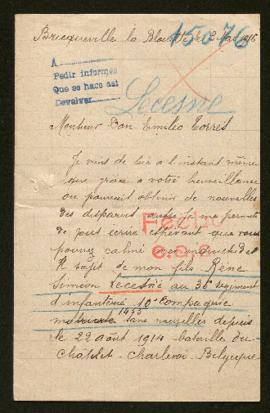 Bricqueville la Blouette le 2
15076
A
Pedir informes
Que se haga así
Devolver
Lecesne
Monsieur Don Emilio Torres
Je viens de lire a l'instant même
que grâce a votre bienveillance
on pouvait obtenir de nouvelles
des disparus
de vous écrire esperant que vous
pouvez calmé
sujet de mon fils René
Simeon Lecesne au 36e regiment
d'infanterie 10e Compagnie
matricule 1433 sans nouvelles depuis
le 22 août 1914 bataille du
Châtelet - Charleroi Belgique